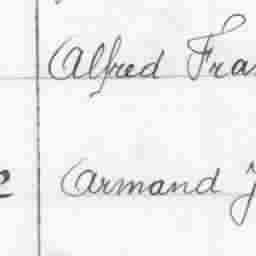 Alfred Fra
Armand J